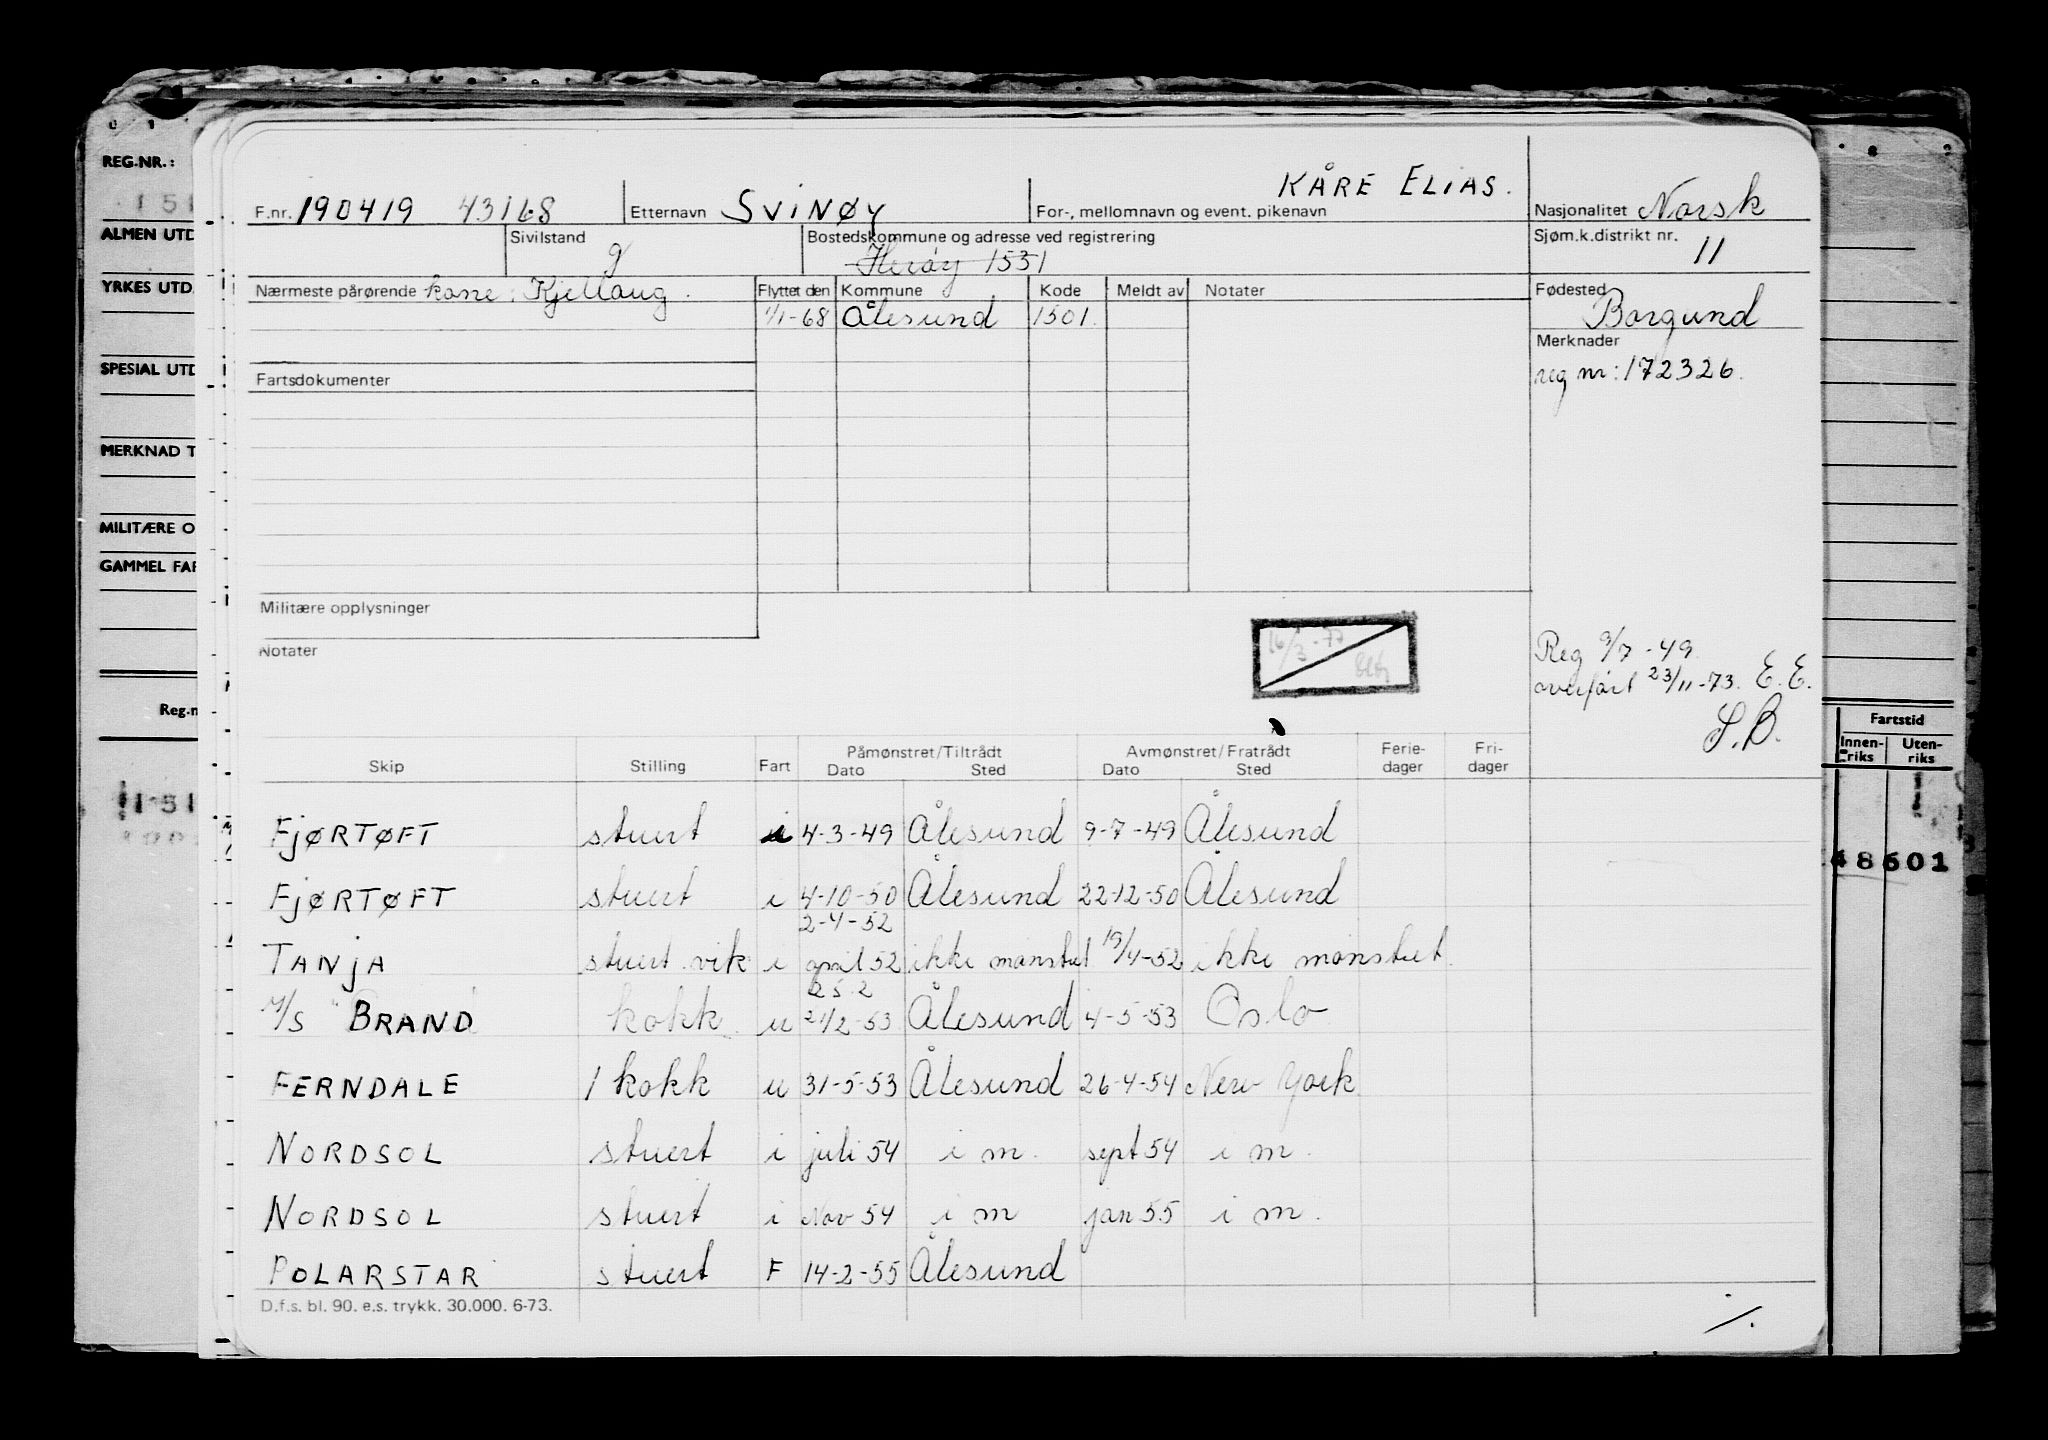 REG.NR.:
ALMEN UTD
YRKES UTD.
SPESIAL UTD
MERKNAD T
MILITÆRE O
GAMMEL FAR
Reg.n
KÅRE ELIAS.
F.nr. 190419 43168 Etternavn SVINØY For-, mellomnavn og event. pikenavn Nasjonalitet Norsk
Sivilstand g Bostedskommune og adresse ved registrering Sjøm.k.distrikt nr. 11
Herøy 1531
Nærmeste pårørende kone: Kjellaug. Flyttet den Kommune Kode Meldt av Notater Fødested
1/1-68 Ålesund 1501. Borgund
Merknader
Fartsdokumenter reg nr: 172326.
Militære opplysninger
Notater
16/3-77
Reg 9/7-49
overført 23/11-73. E.E.
S.B.
Fartstid
Innen-riks Uten-riks
Påmønstret/Tiltrådt Avmønstret/Fratrådt Ferie- Fri-
Skip Stilling Fart Dato Sted Dato Sted dager dager
FJØRTØFT stuert i 4-3-49 Ålesund 9-7-49 Ålesund
48601
FJØRTØFT stuert i 4-10-50 Ålesund 22-12-50 Ålesund
2-4-52
TANJA stuert vik i april 52 ikke mønstret 19/4-52 ikke mønstret
25.2
M/S "BRAND kokk u 21/2-53 Ålesund 4-5-53 Oslo
FERNDALE 1 kokk u 31-5-53 Ålesund 26-4-54 New York
NORDSOL stuert i juli 54 i m. sept 54 i m.
NORDSOL stuert i Nov 54 i m jan 55 i m.
POLARSTAR stuert F 14-2-55 Ålesund
D.f.s. bl. 90. e.s. trykk. 30.000. 6-73.